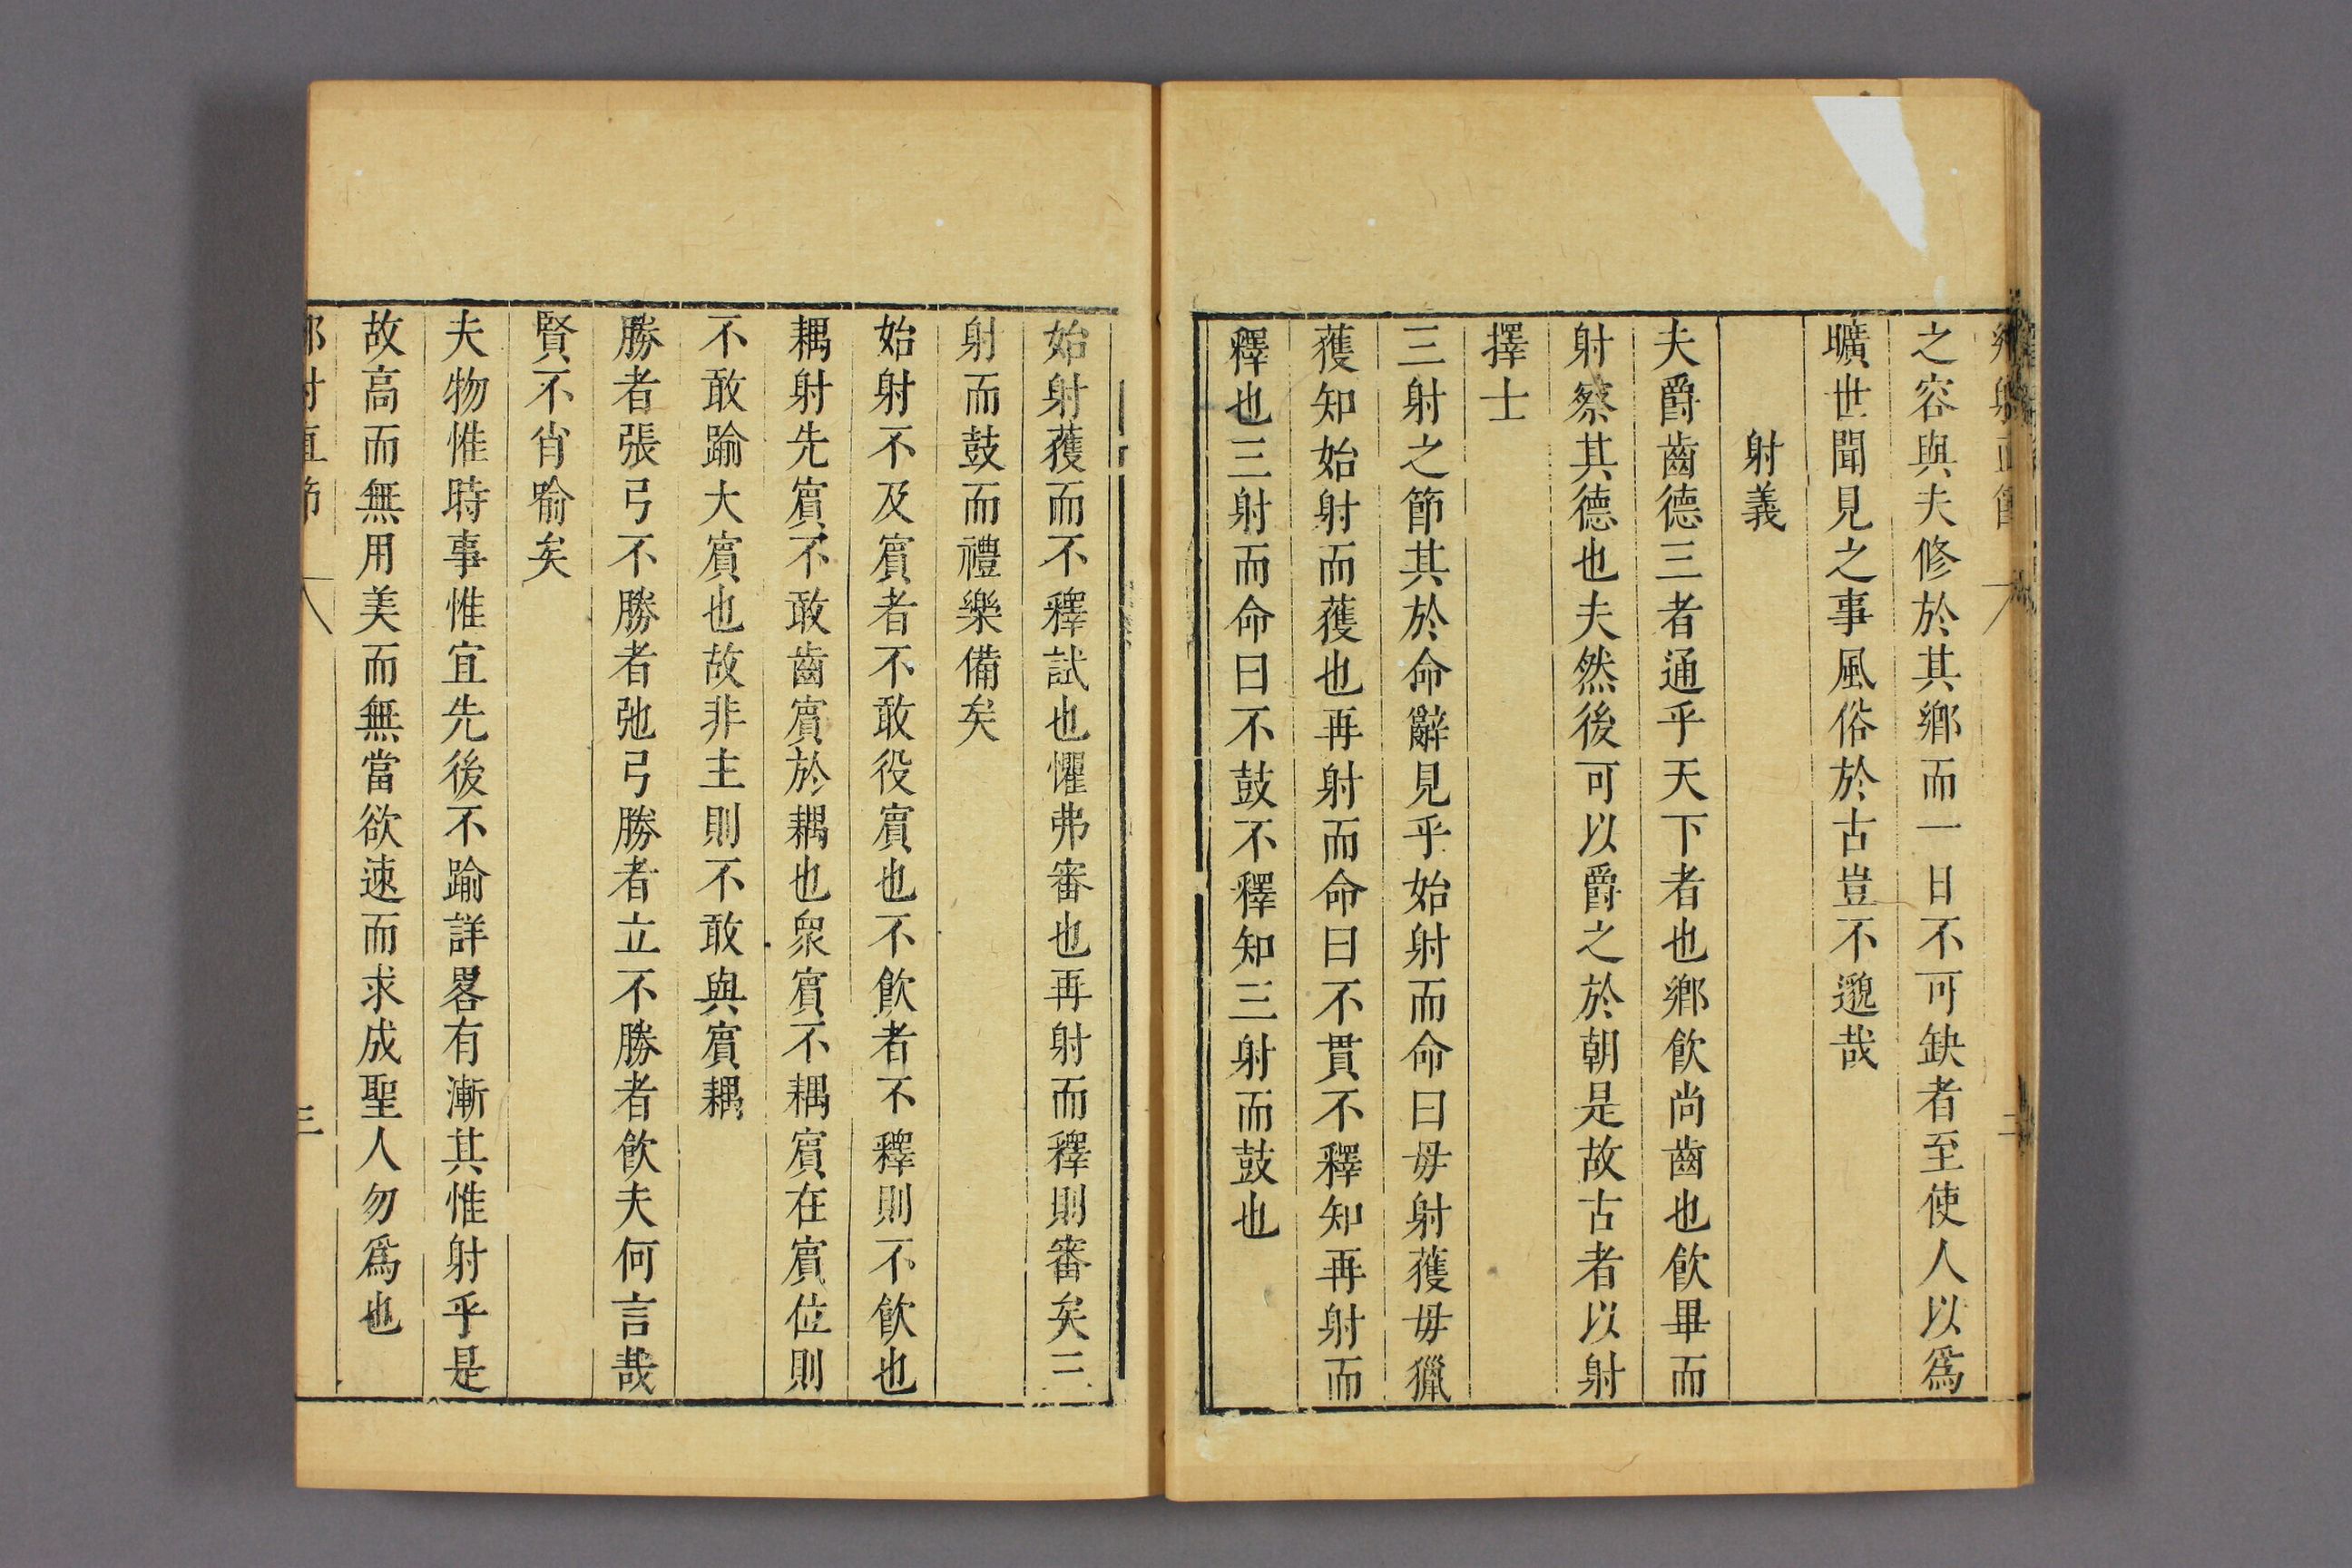 之容與夫修於其鄉而一日不可缺者至使人以爲
曠世聞見之事風俗於古豈不邈哉
射義
夫爵齒德三者通乎天下者也鄉飲尚齒也飲畢而
射察其德也夫然後可以爵之於朝是故古者以射
擇士
三射之節其於命辭見乎始射而命曰毋射獲毋獵
獲知始射而獲也再射而命曰不貫不釋知再射而
釋也三射而命曰不鼓不釋知三射而鼓也
始射獲而不釋試也懼弗審也再射而釋則審矣三
射而鼓而禮樂備矣
始射不及賓者不敢役賓也不飲者不釋則不飲也
耦射先賓不敢齒賓於耦也衆賓不耦賓在賓位則
不敢踰大賓也故非主則不敢與賓耦
勝者張弓不勝者弛弓勝者立不勝者飲夫何言哉
賢不肖喻矣
夫物惟時事惟宜先後不踰詳畧有漸其惟射乎是
故高而無用美而無當欲速而求成聖人勿爲也
三